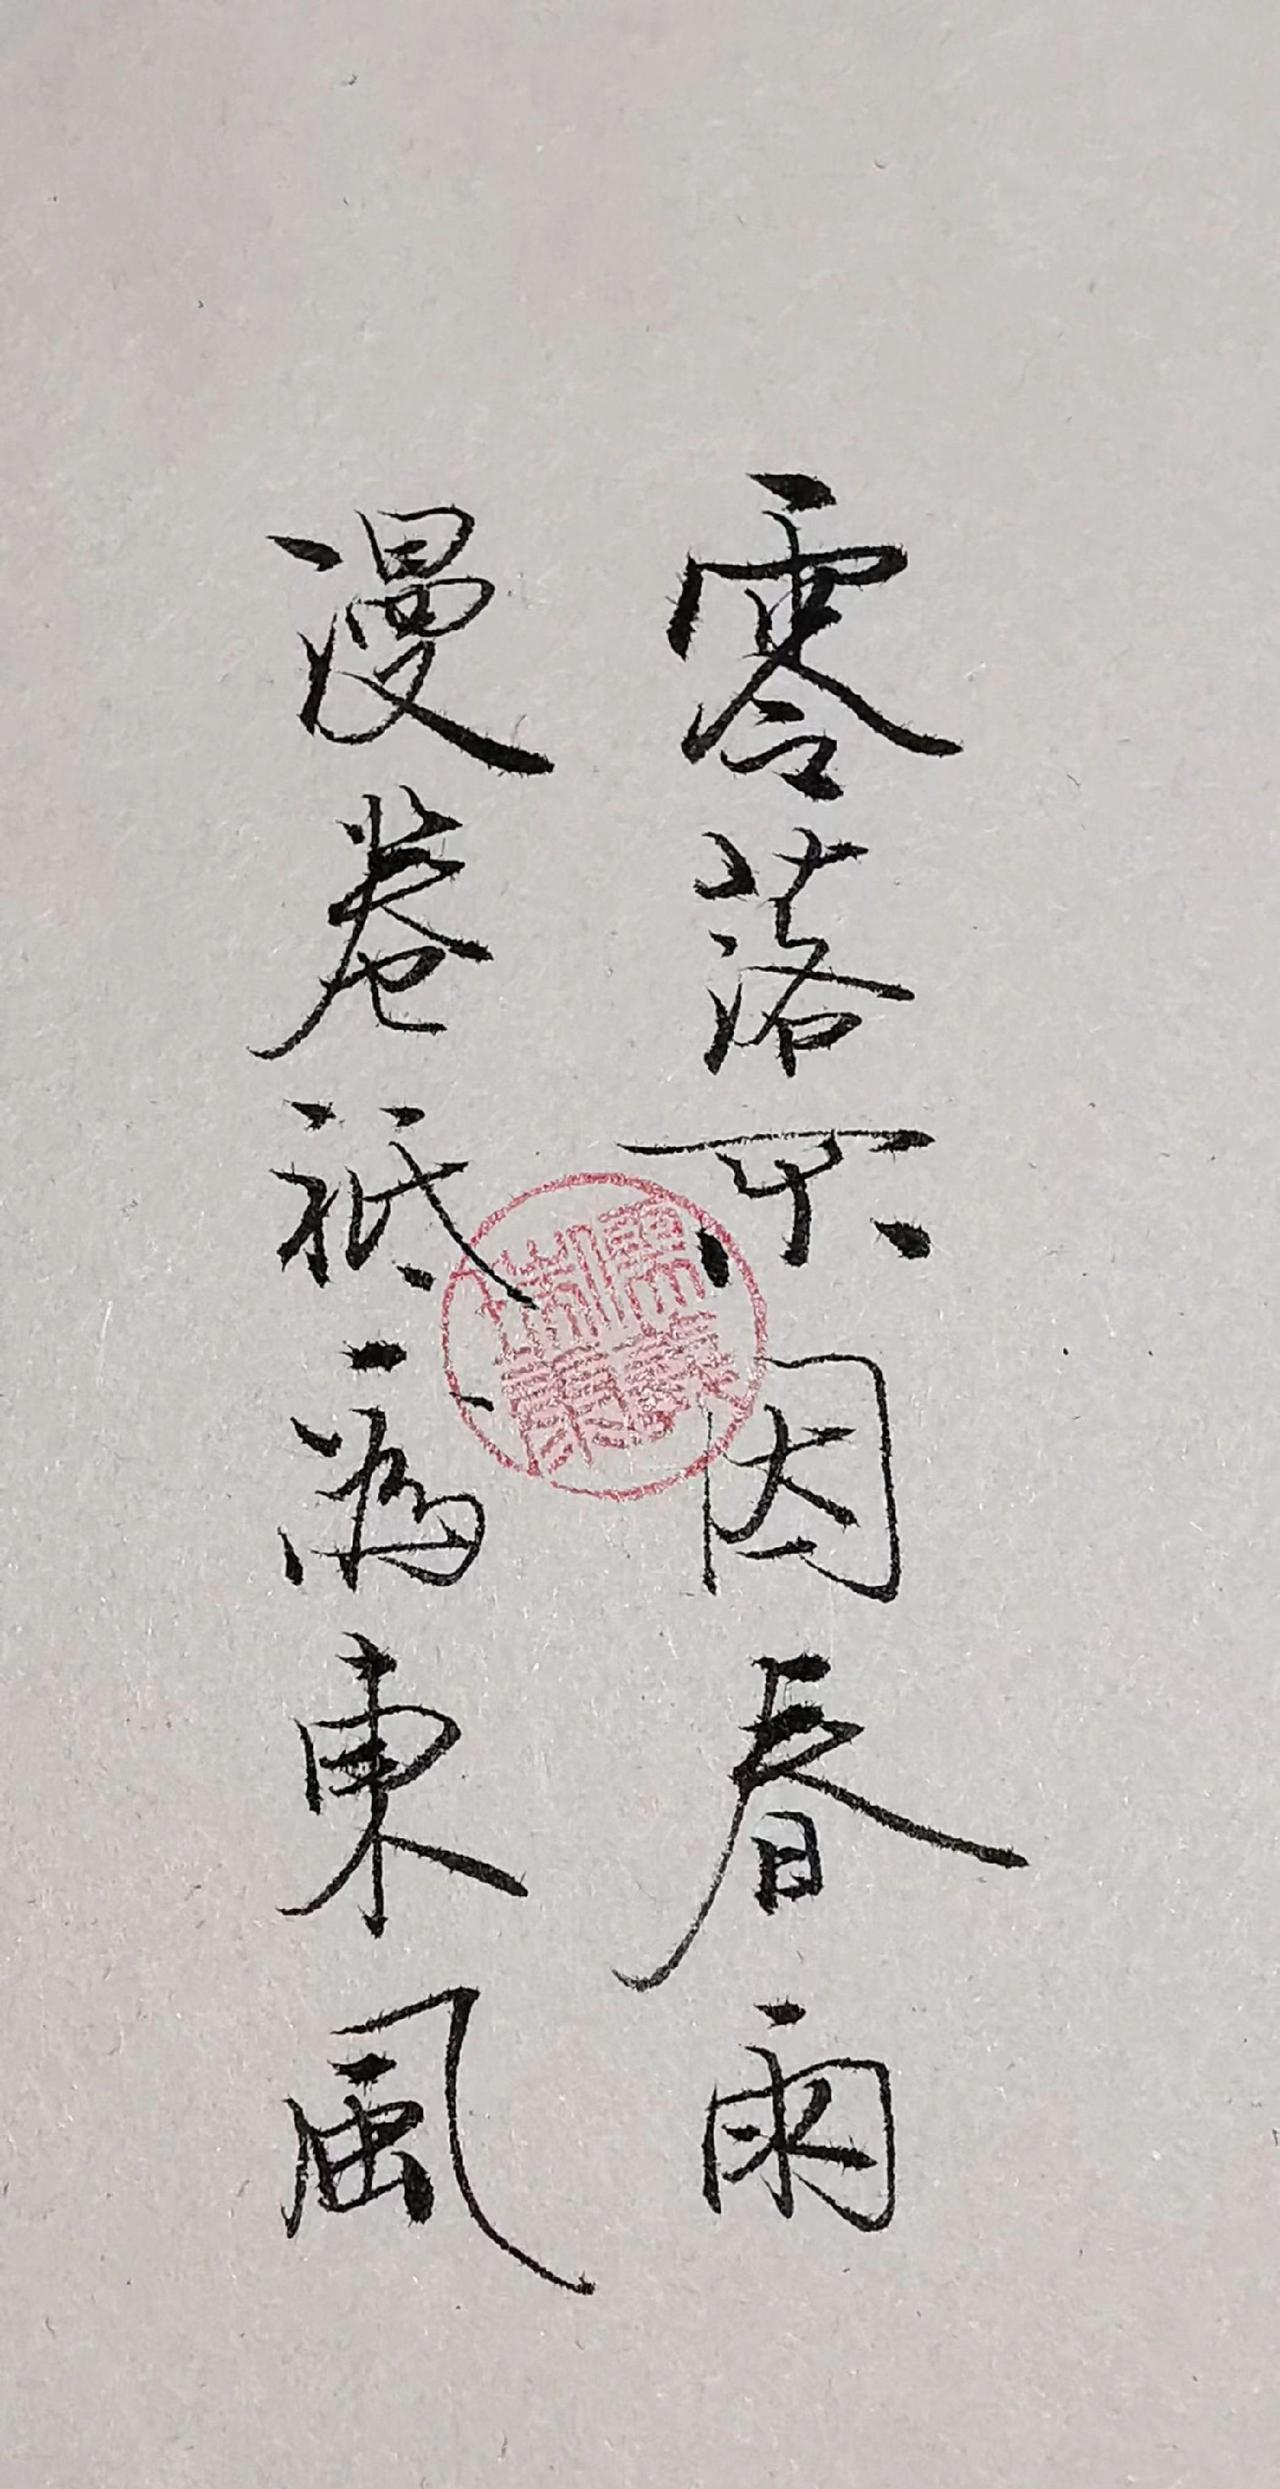 零落不因春雨
漫卷祇為東風